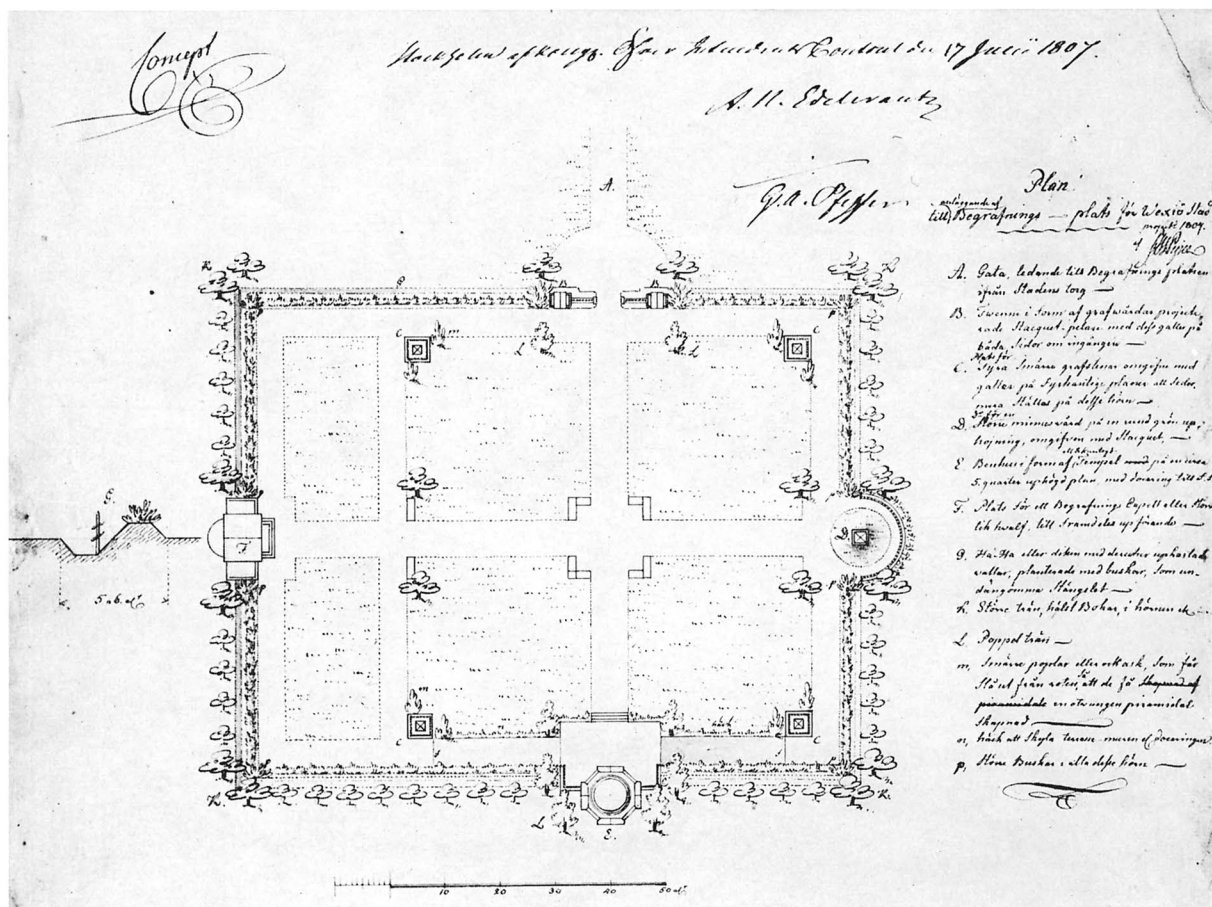 Concept
Stockholm af Kongl. Öfver Intendents Contoiret den 17 Junii 1807.
A. N. Edelcrantz
G. A. Pfeffer
Plan
anläggande af
till Begrafnings-plats för Wexiö Stad
1807.
af
A. Gata, ledande till Begrafnings platsen
ifrån Stadens torg —
B. Twenne i form af grafwårdar projecte-
rade Stacquet-pelare med dess galler på
båda sidor om ingången —
Plats för
C. Fyra smärre grafstenar omgifne med
galler på fyrkantige planer att
ställas på desse hörn —
D. Större minneswård på en rund grön up-
höjning, omgifven med Stacquet. —
E Benhus i form af Tempel på en
5. quarter uphögd plan, med
F. Plats för ett Begrafnings Capell eller
lik hwalf, till framdeles upförande —
G. Ha-Ha eller diken med
wallar, planterade med buskar, som un-
dangömma Stängslet —
K. Större trän, hälst Bokar, i hörnen
L. Poppel trän —
m, Smärre poplar eller ask, som får
slå ut från roten, att de få
en otwungen piramidal
skapnad —
n, häck att skyla terrass muren
p, Större Buskar i alla desse hörn —
A.
K
K
B
P
C
m
L
L
C
G.
F
D.
P
P
5 a 6. al.
m
C
häck
C
K.
L
E.
K.
10 20 30 40 50 al.